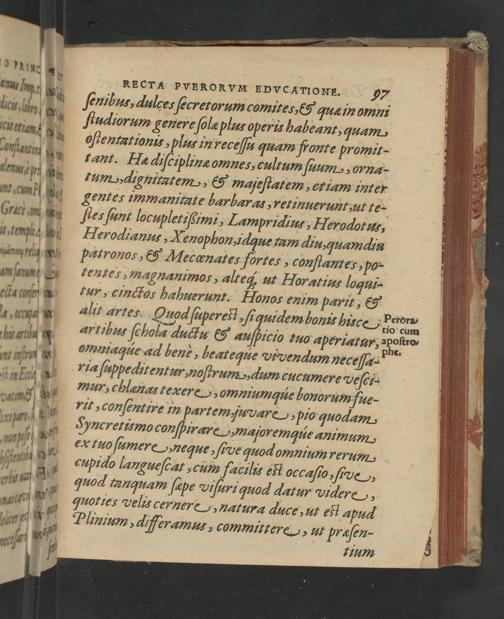 RECTA PVERORVM EDVCATIONE. 97
senibus, dulces secretorum comites, & quæ in omni
studiorum genere solæ plus operis habeant, quam
ostentationis, plus in recessu quam fronte promit-
tant. Hæ disciplinæ omnes, cultum suum, orna-
tum, dignitatem, & majestatem, etiam inter
gentes immanitate barbaras, retinuerunt, ut te-
stes sunt locupletißimi, Lampridius, Herodotus,
Herodianus, Xenophon, idque tam diu, quamdiu
patronos, & Mecœnates fortes, constantes, po-
tentes, magnanimos, alteq́, ut Horatius loqui-
tur, cinctos habuerunt. Honos enim parit, &
alit artes. Quod superest, si quidem bonis hisce
artibus schola ductu & auspicio tuo aperiatur,
omniaque ad benè, beateque vivendum necessa-
ria suppeditentur, nostrum, dum cucumere vesci-
mur, chlænas texere, omniumque bonorum fue-
rit, consentire in partem, juvare, pio quodam
Syncretismo conspirare, majoremque animum
ex tuo sumere, neque, sive quod omnium rerum
cupido languescat, cum facilis est occasio, sive,
quod tanquam sæpe visuri quod datur videre,
quoties velis cernere, natura duce, ut est apud
Plinium, differamus, committere, ut præsen-
tium
Perora-
tio cum
apostro-
phe.